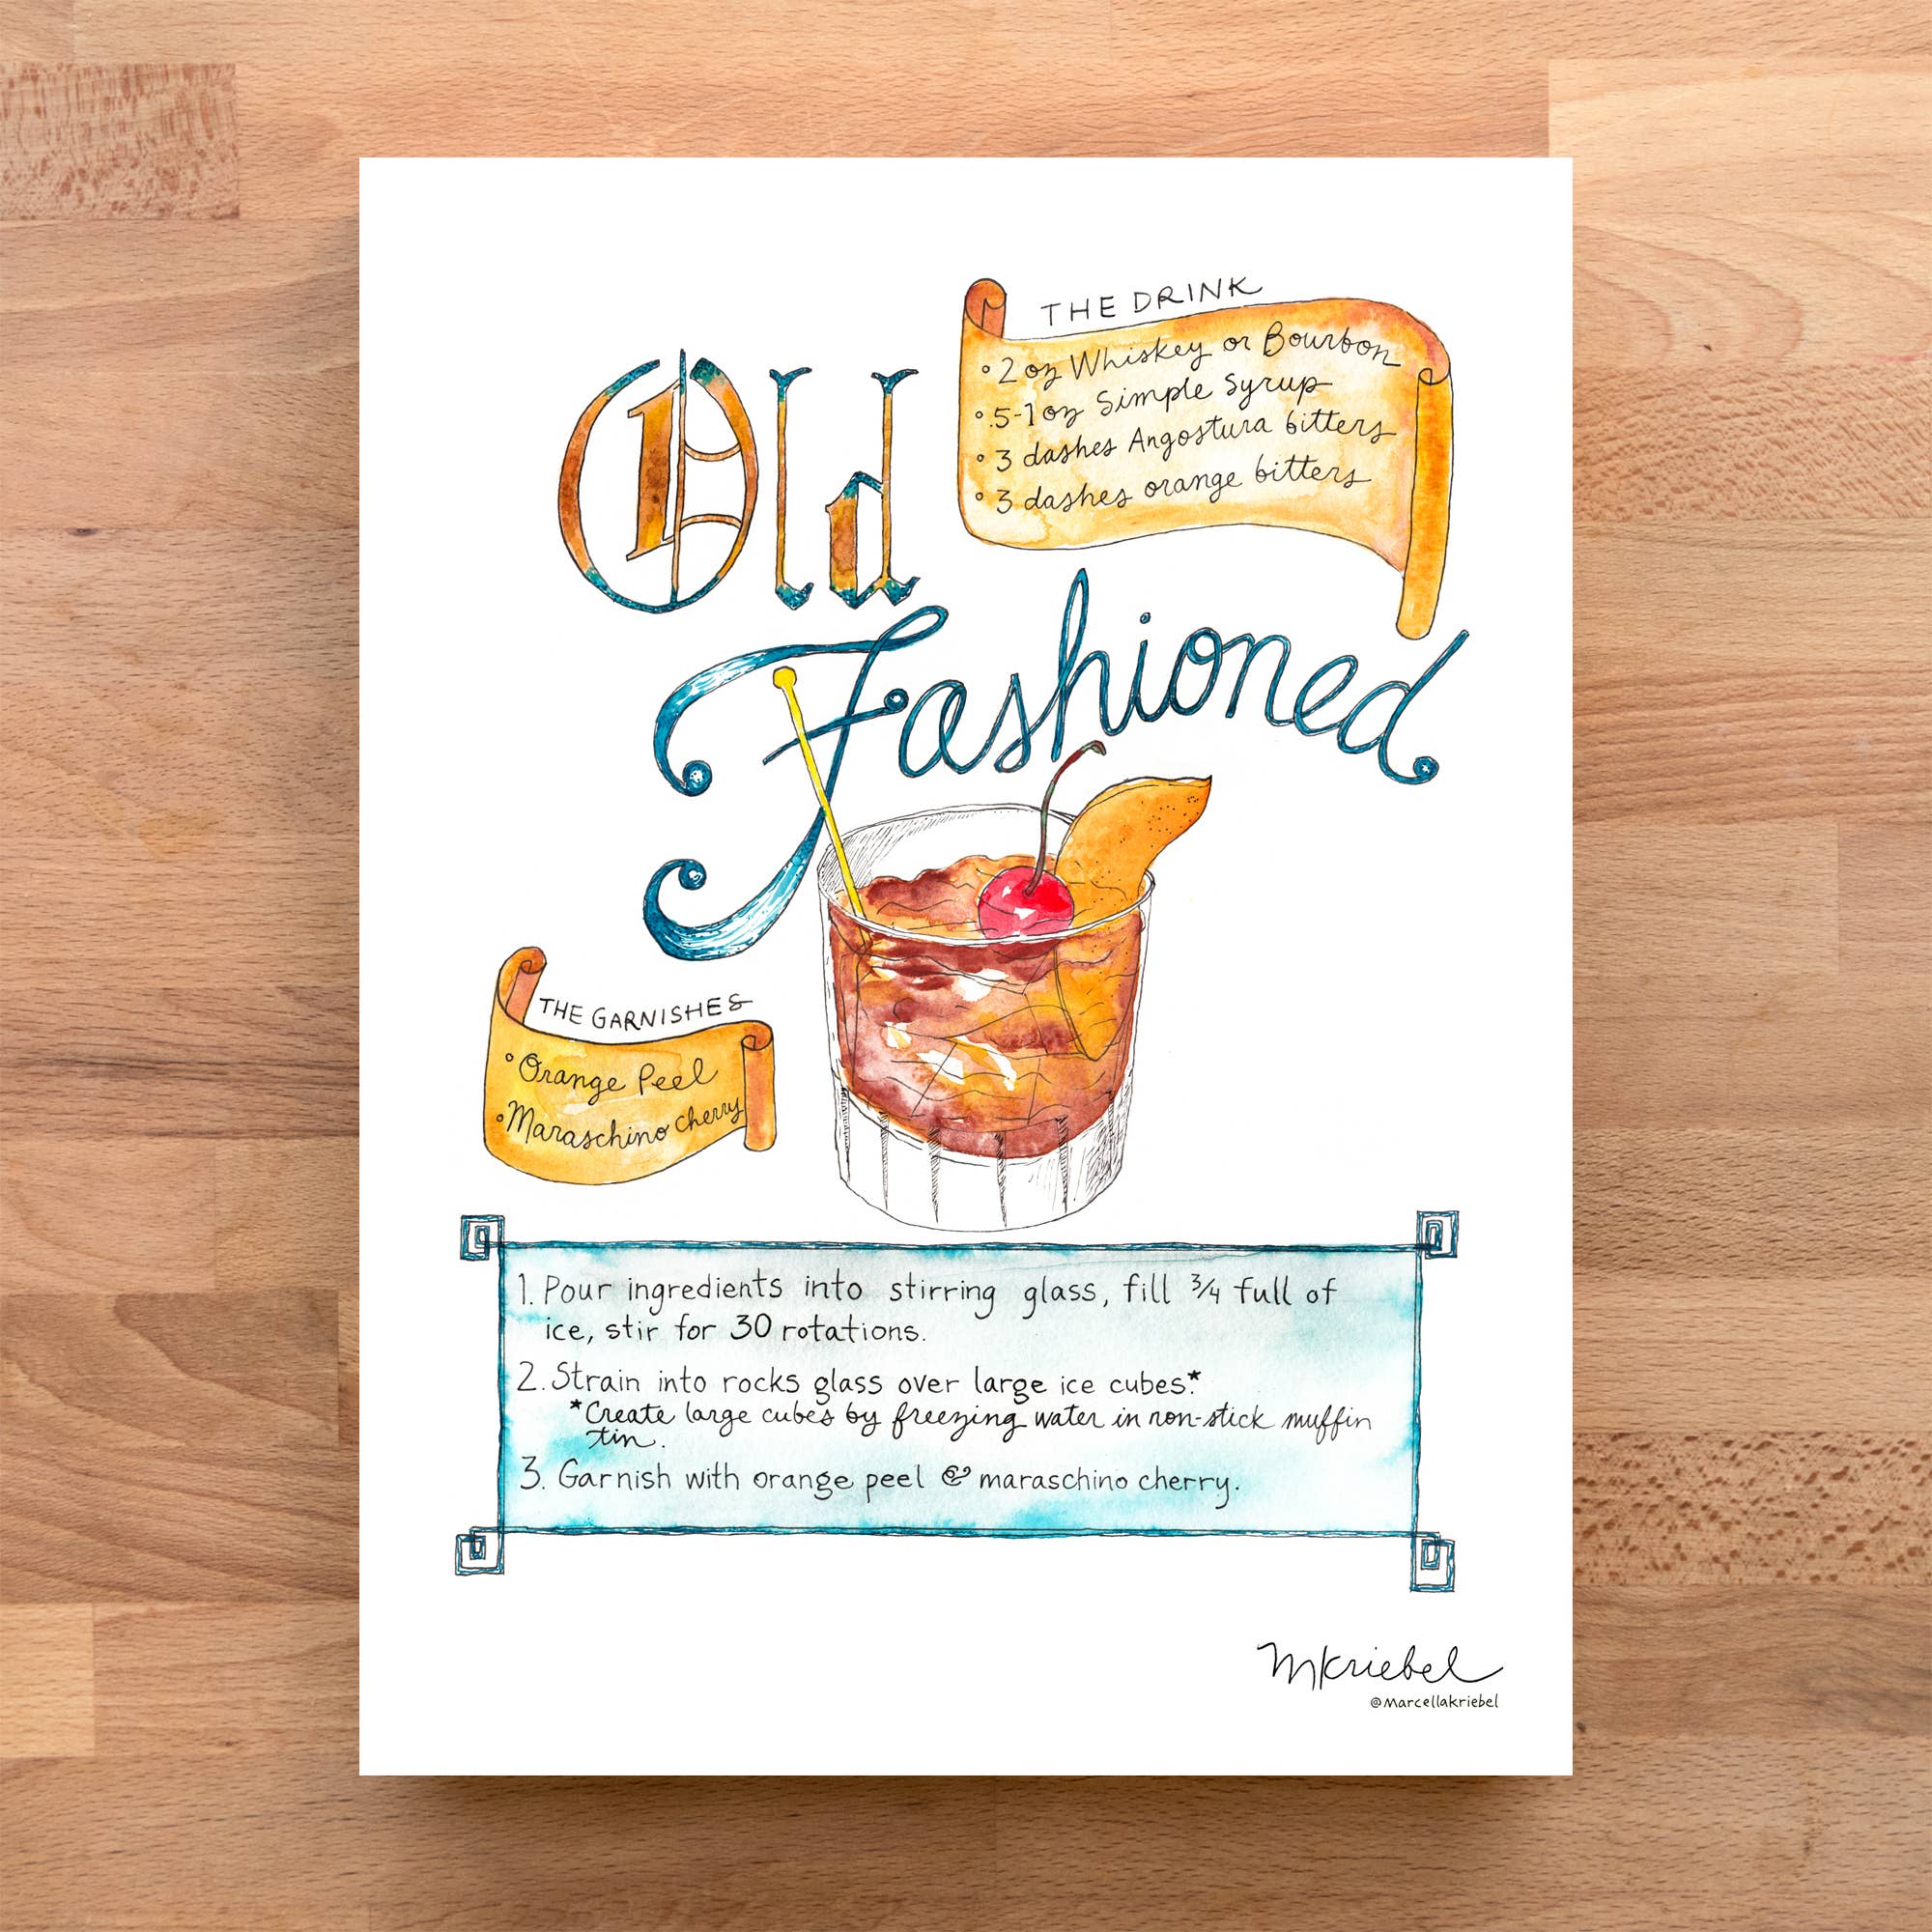 Old
Fashioned
THE DRINK
• 2 oz Whiskey or Bourbon
• .5-1 oz Simple Syrup
• 3 dashes Angostura bitters
• 3 dashes orange bitters
THE GARNISHES
• Orange Peel
• Maraschino cherry
1. Pour ingredients into stirring glass, fill 3/4 full of
ice, stir for 30 rotations.
2. Strain into rocks glass over large ice cubes.*
*Create large cubes by freezing water in non-stick muffin
tin.
3. Garnish with orange peel & maraschino cherry.
MKriebel
@marcellakriebel